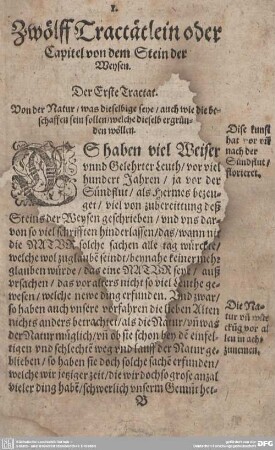 1.
Zwölff Tractätlein oder
Capitel von dem Stein der
Weysen.
Der Erste Tractat.
Von der Natur / was dieselbige seye / auch wie die be-
schaffen sein sollen / welche dieselb ergrün-
den wöllen.
ES haben viel Weiser
vnnd Gelehrter Leuth / vor viel
hundert Jahren / ja vor der
Sündflut / als Hermes bezeu-
get / viel von zubereittung deß
Steins der Weysen geschrieben / vnd vns dar-
von so viel schrifften hinderlassen / das / wann nit
die NATVR solche sachen alle tag würckte /
welche wol zuglaube seindt / beynahe keiner mehr
glauben würde / das eine NATVR sey / auß
vrsachen / das vor alters nicht so viel Leuthe ge-
wesen / welche newe ding erfunden. Vnd zwar /
so haben auch vnsere vorfahren die lieben Alten
nichts anders betrachtet / als die Natur / vñ was
der Natur müglich / vñ ob sie schon bey dē einfel-
tigen vnd schlechtē weg vnd lauff der Natur ge-
blieben / so haben sie doch solche sachē erfunden /
welche wir jetziger zeit / die wir doch so grose anzal
vieler ding habē / schwerlich vnserm Gemüt het-
B
Dise kunst
hat vor vñ
nach der
Sündflut /
florieret.
Die Na-
tur vñ
al
len
zunemen.